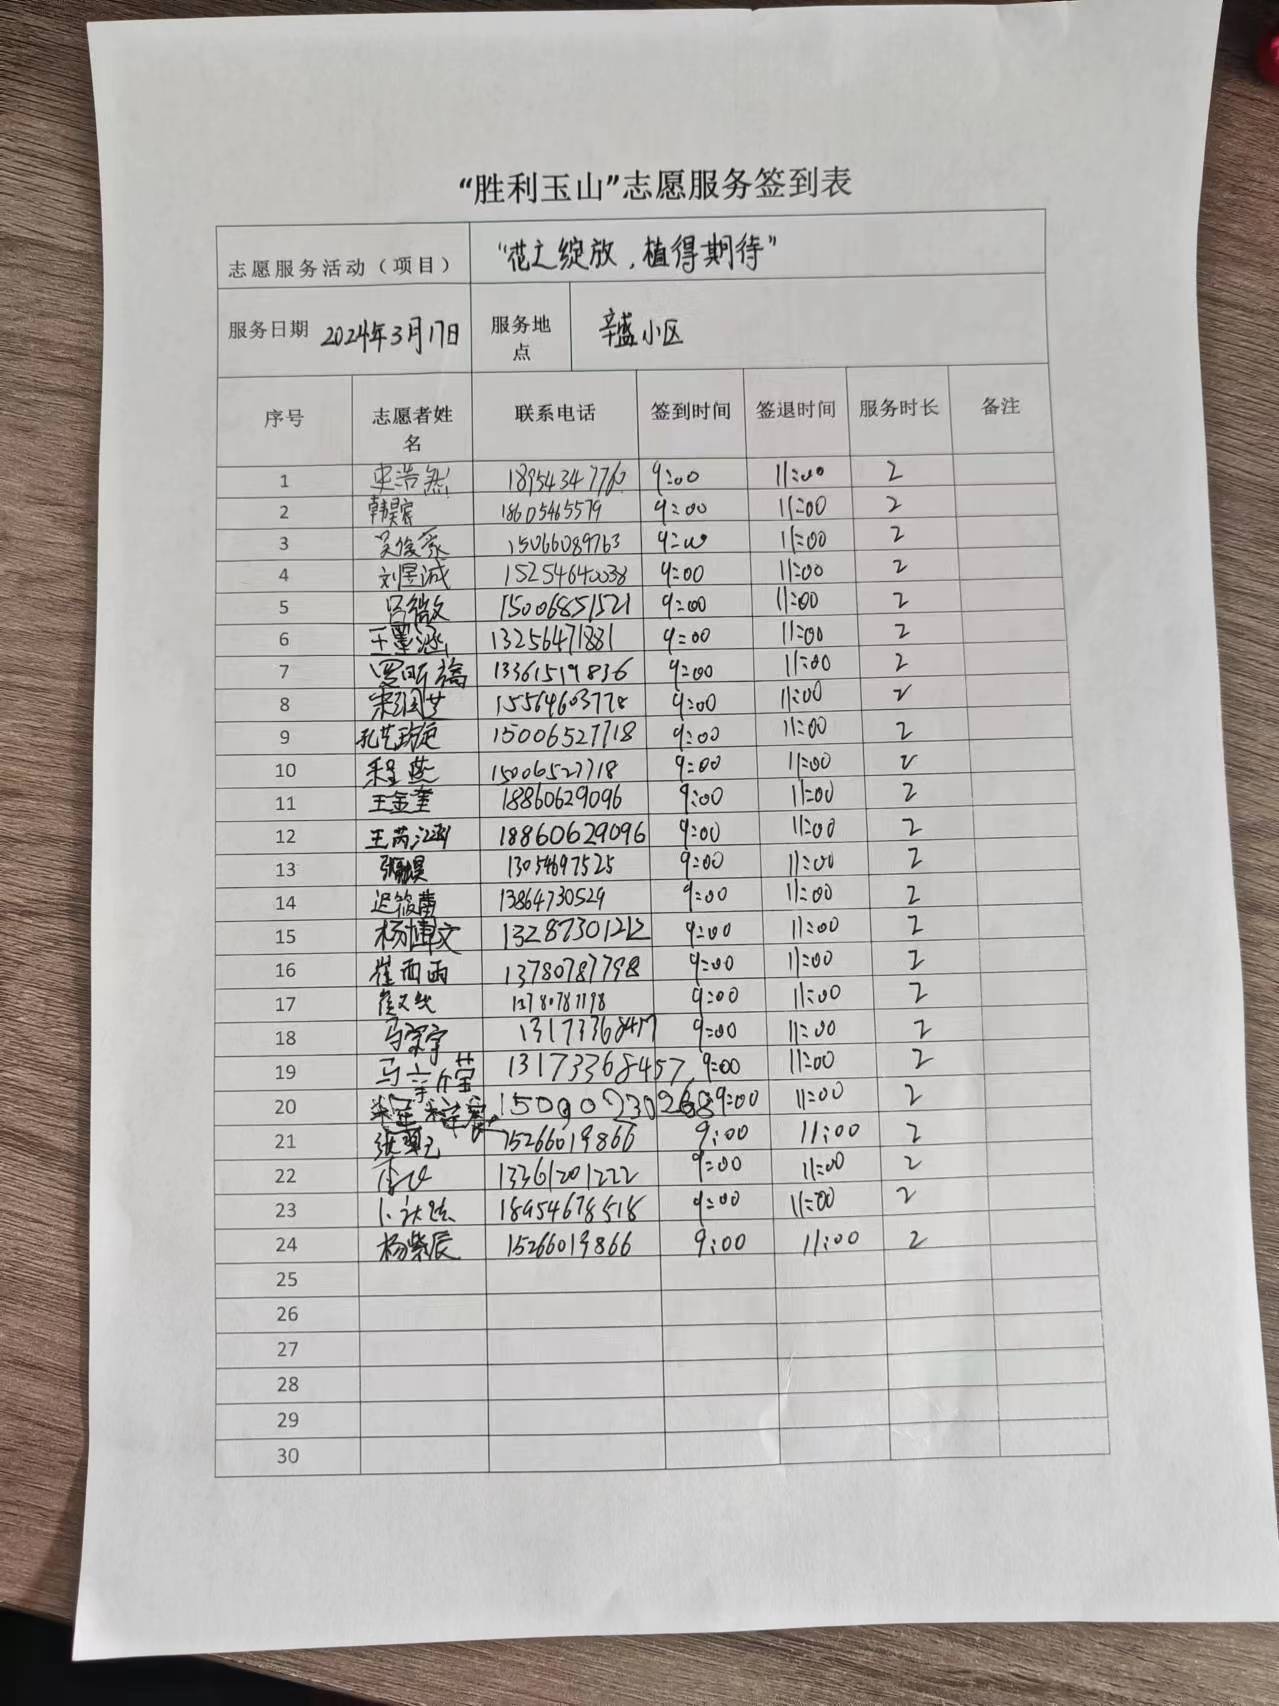 “胜利玉山”志愿服务签到表
志愿服务活动（项目） “花之绽放，植得期待”
服务日期 2024年3月17日 服务地点 辛盛小区
序号 志愿者姓名 联系电话 签到时间 签退时间 服务时长 备注
1 史浩然 18954347760 9:00 11:00 2
2 韩昊霖 18605465579 9:00 11:00 2
3 吴俊豪 15066089763 9:00 11:00 2
4 刘昱诚 15254640038 9:00 11:00 2
5 吕微 15006851521 9:00 11:00 2
6 王墨涵 13256471881 9:00 11:00 2
7 13361519836 9:00 11:00 2
8 15564603778 9:00 11:00 2
9 孔艺璇 15006527718 9:00 11:00 2
10 程燕 15006527718 9:00 11:00 2
11 王金奎 18860629096 9:00 11:00 2
12 王芮涵 18860629096 9:00 11:00 2
13 13054697525 9:00 11:00 2
14 迟筱蕾 13864730529 9:00 11:00 2
15 杨博文 13287301212 9:00 11:00 2
16 崔雨函 13780787798 9:00 11:00 2
17 13780787798 9:00 11:00 2
18 9:00 11:00 2
19 13173368457 9:00 11:00 2
20 9:00 11:00 2
21 15266019866 9:00 11:00 2
22 13361201222 9:00 11:00 2
23 18954678518 9:00 11:00 2
24 杨紫辰 15266019866 9:00 11:00 2
25
26
27
28
29
30